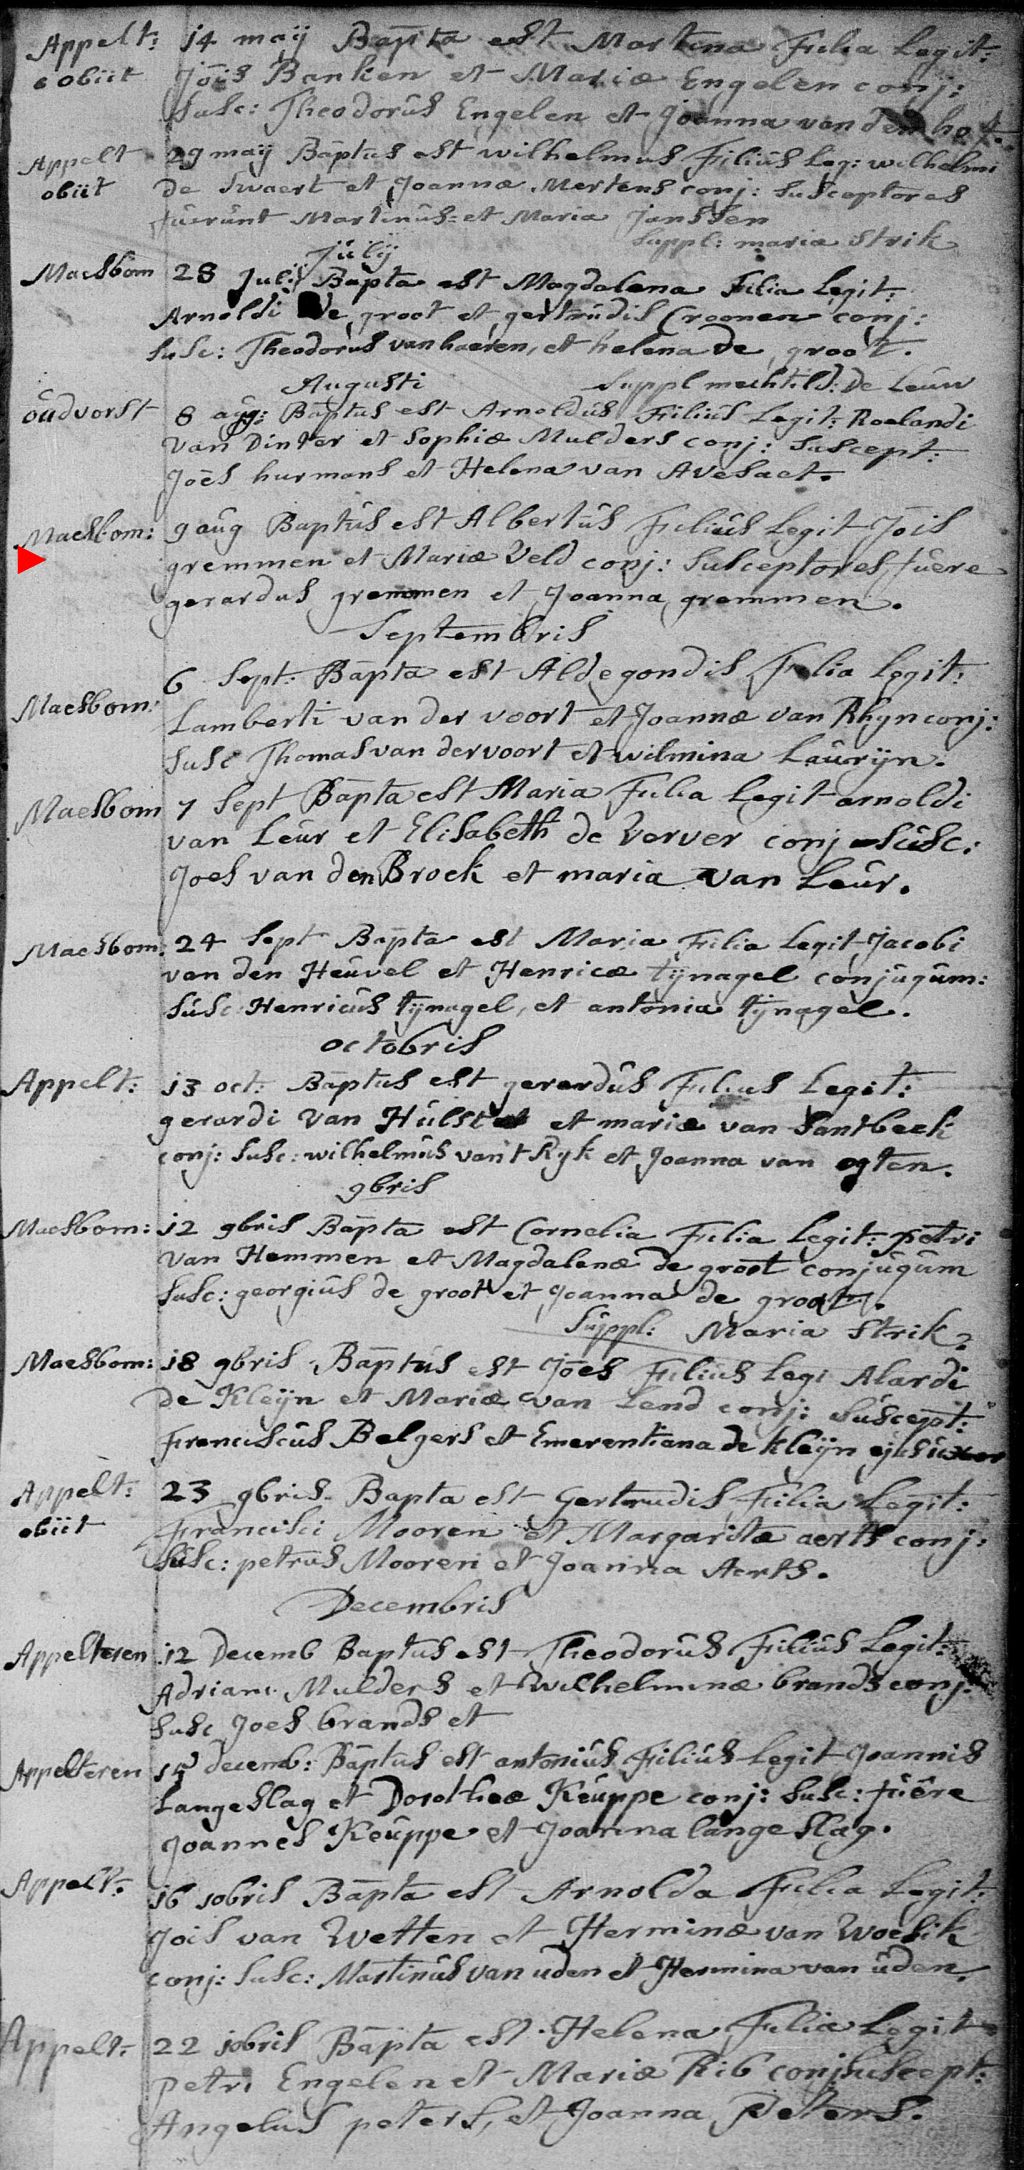 Appelt: 14 maij Bapta est Martina Filia Legit:
obiit Jois Banken et Mariæ Engelen conj:
Susc: Theodorus Engelen et Joanna van den
Appelt 29 maij Baptus est wilhelmus Filius Leg: wilhelmi
obiit de Swaert et Joannæ Mertens conj: Susceptores
fuerunt Martinus et Maria Janssen
Suppl: maria Strik
Julij
Maesbom 28 Julij Bapta est Magdalena Filia Legit:
Arnoldi De groot et gertrudis Croonen conj:
Susc: Theodorus van haeren, et helena De groot.
Augusti Suppl mechtild: De Leuw
oudvorst 8 aug: Baptus est Arnoldus Filius Legit: Roelandi
Van Dinter et Sophiæ Mulders conj: Suscept:
Joes hurmans et Helena van Avesaet.
Maesbom: 9 aug Baptus est Albertus Filius Legit Jois
gremmen et Mariæ Veld conj: Susceptores fuere
gerardus gremmen et Joanna gremmen.
Septembris
6 Sept: Bapta est Aldegondis Filia Legit:
Maesbom: Lamberti van der voort et Joannæ van Rhyn conj:
Susc Thomas van dervoort et wilmina Lauwrijn.
Maesbom 7 Sept Bapta est Maria Filia Legit arnoldi
van Leur et Elisabeth de Verver conj Susc:
Joes van den Broek et maria van Leur.
Maesbom: 24 Sept Bapta est Maria Filia Legit Jacobi
van den Heuvel et Henricæ tijnagel conjugum:
Susc Henricus tijnagel, et antonia tijnagel.
octobris
Appelt: 13 oct: Baptus est gerardus Filius Legit:
gerardi Van Hulst et mariæ van Santbeek
conj: Susc: wilhelmus van t Ryk et Joanna van ogten.
9bris
Maesbom: 12 9bris Bapta est Cornelia Filia Legit: petri
Van Hemmen et Magdalenæ de groot conjugum
Susc: georgius de groot et Joanna de groot.
Suppl: Maria Strik.
Maesbom: 18 9bris Baptus est Joes Filius Legi Alardi
de Kleijn et Mariæ van Lend conj: Suscept:
Franciscus Belgers et Emerentiana de kleijn ejus uxor
Appelt: 23 9bris Bapta est Gertrudis Filia Legit:
obiit Francisci Mooren et Margaritæ aerts conj:
Susc: petrus Mooren et Joanna Aerts.
Decembris
Appelteren 12 Decemb Baptus est Theodorus Filius Legit:
Adriani Mulders et Wilhelminæ brands conj:
Susc Joes brands et
Appelteren decemb: Baptus est antonius Filius Legit Joannis
Langeslag et Dorotheæ Keuppe conj: Susc: fuêre
Joannes Keuppe et Joanna langeslag.
Appelt: 16 10bris Bapta est Arnolda Filia Legit:
Jois van Wetten et Herminæ van Woesik
conj: Susc: Martinus van uden et Hermina van uden.
Appelt: 22 10bris Bapta est Helena Filia Legit
petri Engelen et Mariæ Rib conj Suscept:
Angelus peters, et Joanna Peters.